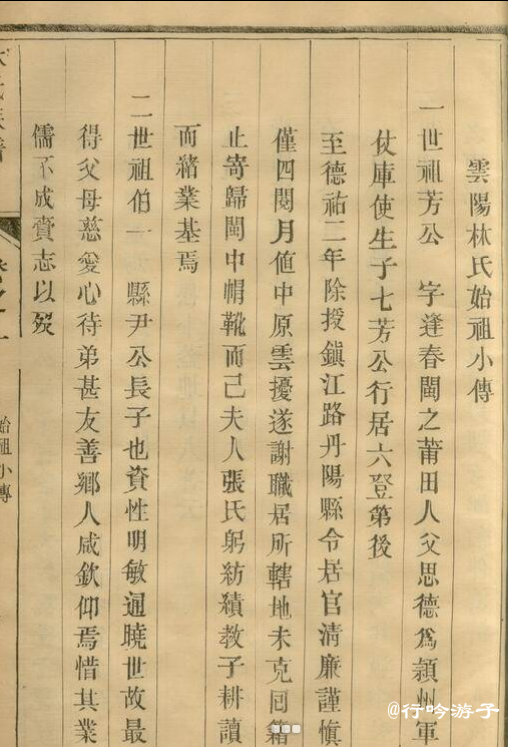 雲陽林氏始祖小傳
一世祖芳公 字逢春閩之莆田人父思德為潁州軍
仗庫使生子七芳公行居六登第後
至德祐二年除授鎮江路丹陽縣令居官清廉謹慎
僅四閱月值中原雲擾遂謝職居所轄地未克囘籍
止寄歸閩中帽靴而已夫人張氏躬紡績教子耕讀
而緒業基焉
二世祖伯一 縣尹公長子也資性明敏通曉世故最
得父母慈愛心待弟甚友善鄉人咸欽仰焉惜其業
儒不成賫志以歿
始祖小傳
@行吟游子